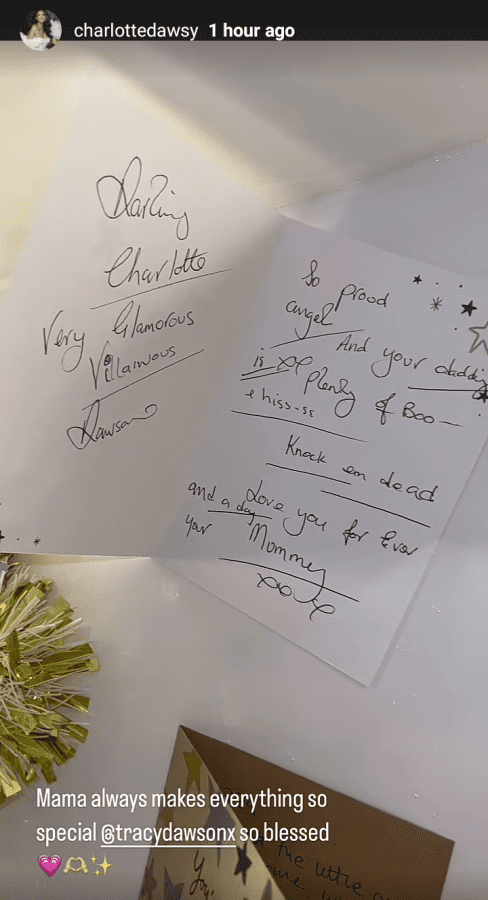 charlottedawsy 1 hour ago
Darling
Charlotte
Very Glamorous
Villainous
Dawson
So proud
angel
And your daddy
is xx Plenty of Boo-
e hiss-ss
Knock em dead
Love you for Ever
and a day
your Mommey
xoxx
Mama always makes everything so
special @tracydawsonx so blessed
the little